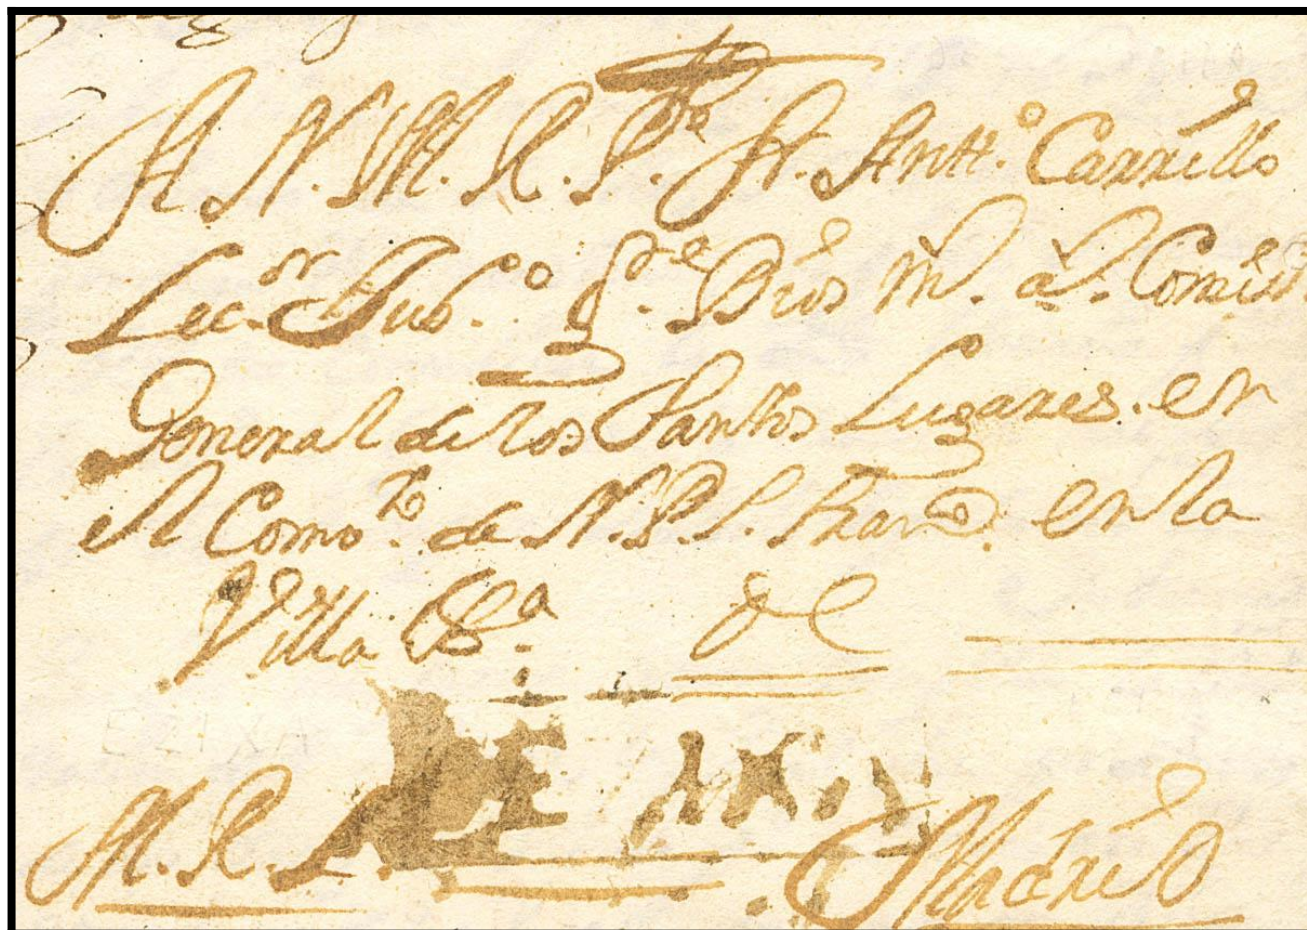 A N. M. R. P.e Fr. Antt.o Carrillo
Lec.or Jub.o g.e Dios m.s a.s Comis.
General de los Santos Lugares. en
el Comv.to de N. P. S. Fran.co en la
Villa de
M. R. P. Madrid